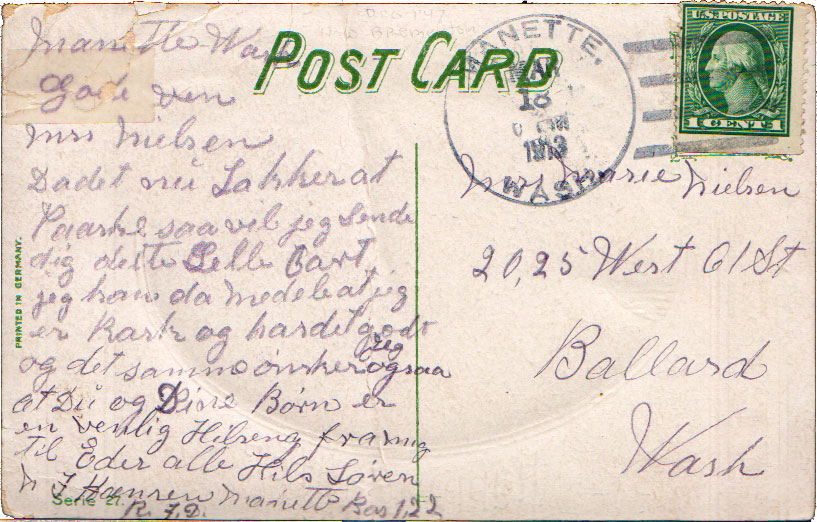 Manette Wash
Gode ven
Mrs Nielsen
Da det nu Lakker at
Paaske saa vil jeg sende
dig dette Lelle Cart
jeg kan da medele at jeg
er Rask og har det godt
og det samme ønsker jeg ogsaa
at Du og Dine Børn er
en venlig Hilsen fra mig
til Eder alle Hils Søren
Hansen Manette Box 122
R. F. D.
Serie 21.
PRINTED IN GERMANY.
POST CARD
MANETTE.
MAR
18
1913
WASH
U.S. POSTAGE
1 CENT 1
Mrs Marie Nielsen
20,25 West 61 St
Ballard
Wash